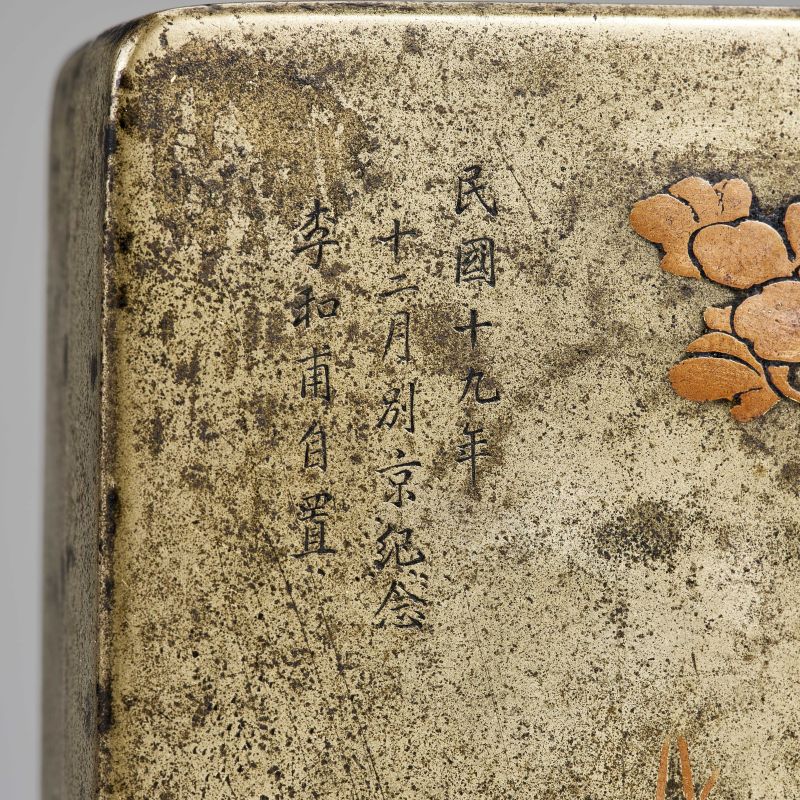 民國十九年
十二月別京紀念
李和甫自置